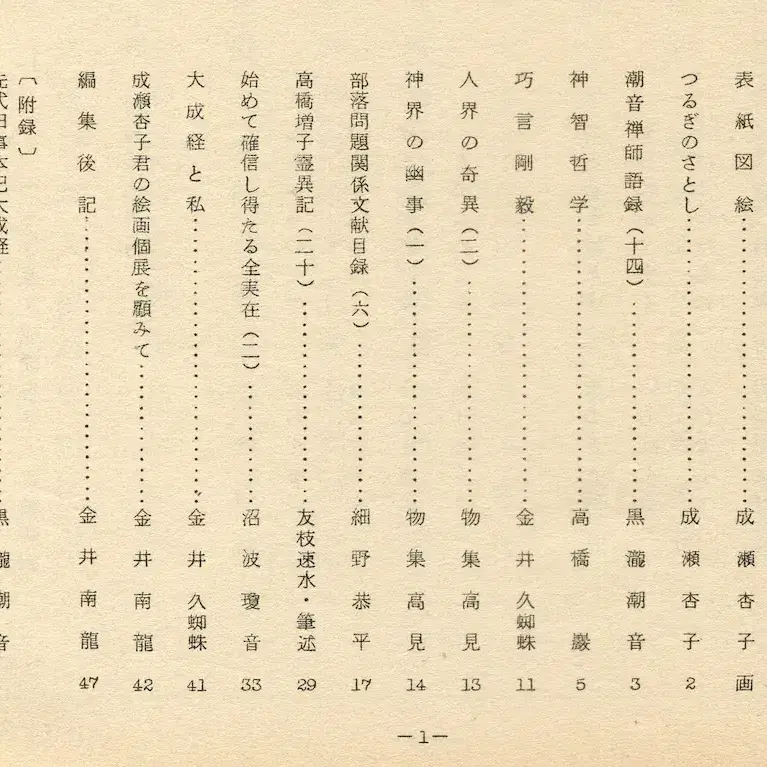 表紙図絵……………………成瀬杏子画
つるぎのさとし……………………成瀬杏子 2
潮音禅師語録（十四）……………………黒瀧潮音 3
神智哲学……………………高橋巌 5
巧言剛毅……………………金井久蜘蛛 11
人界の奇異（二）……………………物集高見 13
神界の幽事（一）……………………物集高見 14
部落問題関係文献目録（六）……………………細野恭平 17
高橋増子霊異記（二十）……………………友枝速水・筆述 29
始めて確信し得たる全実在（二）……………………沼波瓊音 33
大成経と私……………………金井久蜘蛛 41
成瀬杏子君の絵画個展を顧みて……………………金井南龍 42
編集後記……………………金井南龍 47
〔附録〕
先代旧事本紀大成経……………………黒瀧潮音
―1―